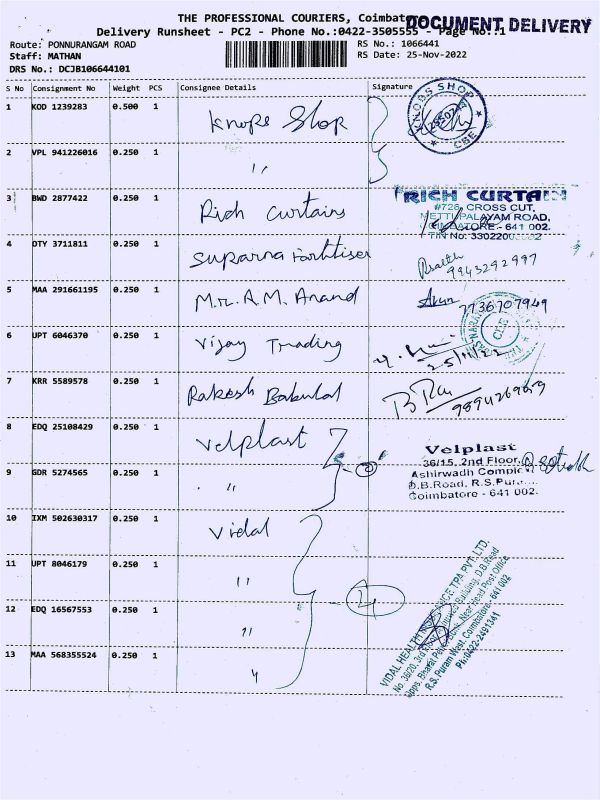 THE PROFESSIONAL COURIERS, Coimbat
DOCUMENT DELIVERY
Delivery Runsheet - PC2 - Phone No.:0422-3505555 - Page No.:1
Route: PONNURANGAM ROAD
RS No.: 1066441
Staff: MATHAN
RS Date: 25-Nov-2022
DRS No.: DCJB106644101
S No Consignment No Weight PCS Consignee Details Signature
1 KOD 1239283 0.500 1 Knobs Shop
KNOBS SHOP
CBE
2 VPL 941226016 0.250 1 "
3 BWD 2877422 0.250 1 Rich Curtains
RICH CURTAIN
#726, CROSS CUT,
METTUPALAYAM ROAD,
COIMBATORE - 641 002.
TIN No: 33022003
4 DTY 3711811 0.250 1 Suparna
9943292997
5 MAA 291661195 0.250 1 Mr. A.M. Anand
Arun 7736707949
6 UPT 6046370 0.250 1 Vijay Trading
25/11/22
CBE
7 KRR 5589578 0.250 1 Rakesh Babulal
8 EDQ 25108429 0.250 1 Velplast
2
Velplast
36/15, 2nd Floor,
Ashirwadh Complex
D.B.Road, R.S.Pura
Coimbatore - 641 002.
9 GDR 5274565 0.250 1 "
10 IXM 502630317 0.250 1 Vidal
11 UPT 8046179 0.250 1 "
4
12 EDQ 16567553 0.250 1 "
13 MAA 568355524 0.250 1 "
VIDAL HEALTH INSURANCE TPA PVT. LTD.
No. 36/20, 3rd Floor, Building, D.B.Road
Opps. Bharat Petrol Bunk, Near Head Post Office
R.S. Puram West, Coimbatore - 641 002
Ph:0422-2491341